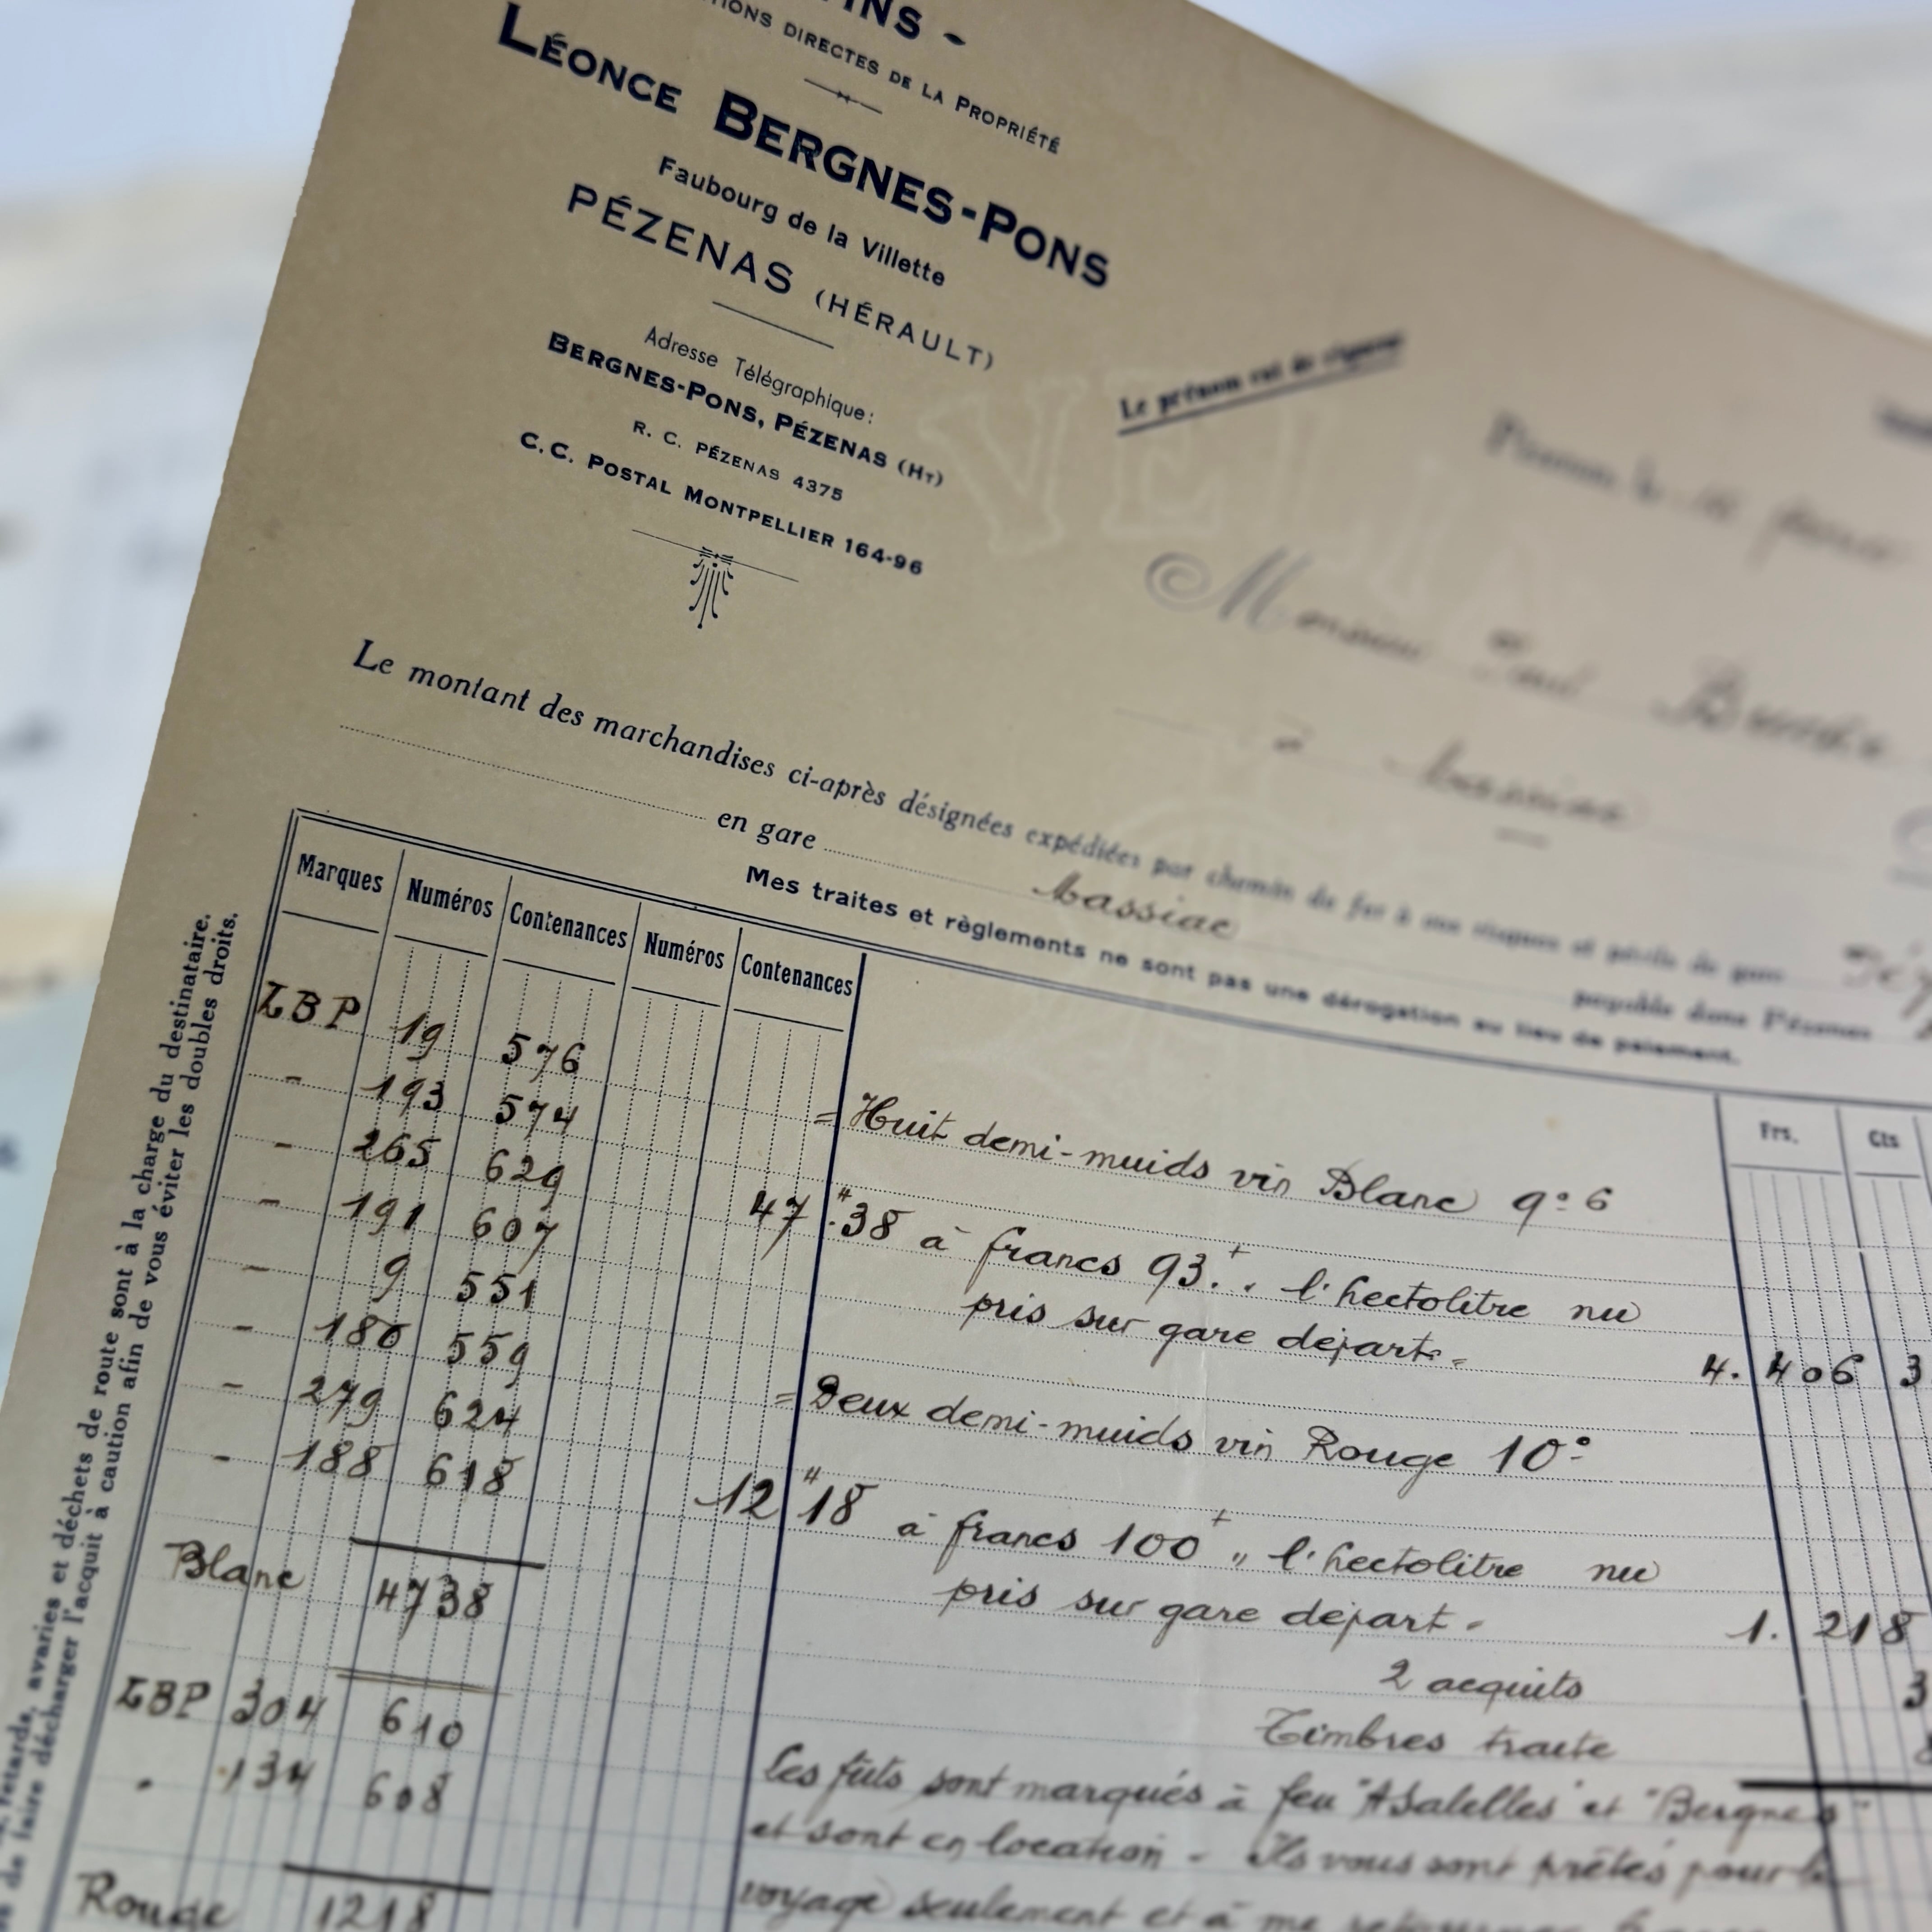 INS -
TIONS DIRECTES DE LA PROPRIÉTÉ
LÉONCE BERGNES-PONS
Faubourg de la Villette
PÉZENAS (HÉRAULT)
Adresse Télégraphique:
BERGNES-PONS, PÉZENAS (HT)
R. C. PÉZENAS 4375
C.C. POSTAL MONTPELLIER 164-96
Le prénom est de rigueur
Monsieur Paul
à Massiac
Le montant des marchandises ci-après désignées expédiées par chemin de fer à vos risques et périls de gare
en gare Massiac payable dans Pézenas
Mes traites et règlements ne sont pas une dérogation au lieu de paiement.
Marques Numéros Contenances Numéros Contenances Frs. Cts
LBP 19 576
- 193 574
- 265 629
- 191 607
- 9 551
- 186 559
- 279 624
- 188 618
Blanc 4738
LBP 304 610
. 134 608
Rouge 1218
= Huit demi-muids vin Blanc 9°6
47 H 38 à francs 93.+. l'hectolitre nu
pris sur gare départ - 4.406 3
= Deux demi-muids vin Rouge 10°
12 H 18 à francs 100+ „ l'hectolitre nu
pris sur gare départ - 1.218
2 acquits 3
Timbres traite 8
Les fûts sont marqués à feu "ASalelles" et "Bergnes"
et sont en location - Ils vous sont prêtés pour le
voyage seulement et à me retourner
retards, avaries et déchets de route sont à la charge du destinataire.
de faire décharger l'acquit à caution afin de vous éviter les doubles droits.